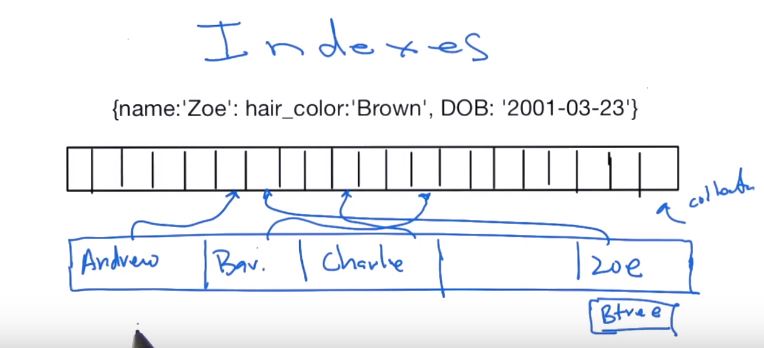 Indexes
{name:'Zoe': hair_color:'Brown', DOB: '2001-03-23'}
Andrew Bar. Charlie Zoe
Btree